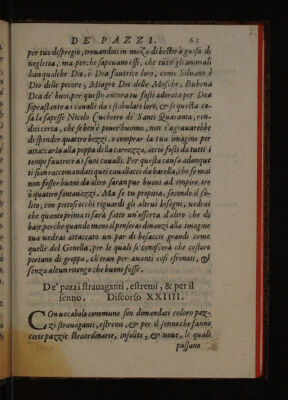 DE' PAZZI. 63
per tuo dispregio, trouandosi in mezo di bestie à guisa di
negletta, ma perche sapeuano essi, che tutti gli animali
han qualche Dio, ò Dea fautrice loro, come Siluano, è
Dio delle pecore, Miagro Dio delle Mosche, Bubona
Dea de' buoi, per questo ancora tu fosti adorata per Dea
soprastante a i caualli da i stabulari loro, & se questa co-
sa la sapesse Nicolò Cucchiero de' Santi Quaranta, ren-
diti certa, che se ben è pouer'huomo, non s'agrauarebbe
di spender quattro bezzi, è comprar la tua imagine per
attaccarla alla poppa della carrozza, acciò fosti da tutti i
tempi fautrice a i suoi caualli. Per questa causa adunque
ti siano raccomandati questi cauallacci da barella, che se mai
non fosser buoni da altro saran pur buoni ad empire tre
ò quattro famauazzi. Ma se tu propitia, secondo il so-
lito, con pietosi occhi riguardi gli altrui bisogni, vedrai
che quanto prima ti sarà fatto un' offerta d'altro che di
baie, perche quando meno il penserai dinanzi alla imagine
tua vedrai attaccato un par de besaccie grandi come
quelle del Gonella, per le quali si conoscerà che costoro
portano di groppa, ch'eran per auanti così sfrenati, &
senza alcun ritegno che buono fosse.
De' pazzi strauaganti, estremi, & per il
senno. Discorso XXIIII.
CON vocabolo commune son dimandati coloro paz-
zi strauaganti, estremi, & per il senno che fanno
certe pazzie straordinarie, insolite, & noue, le quali
passano